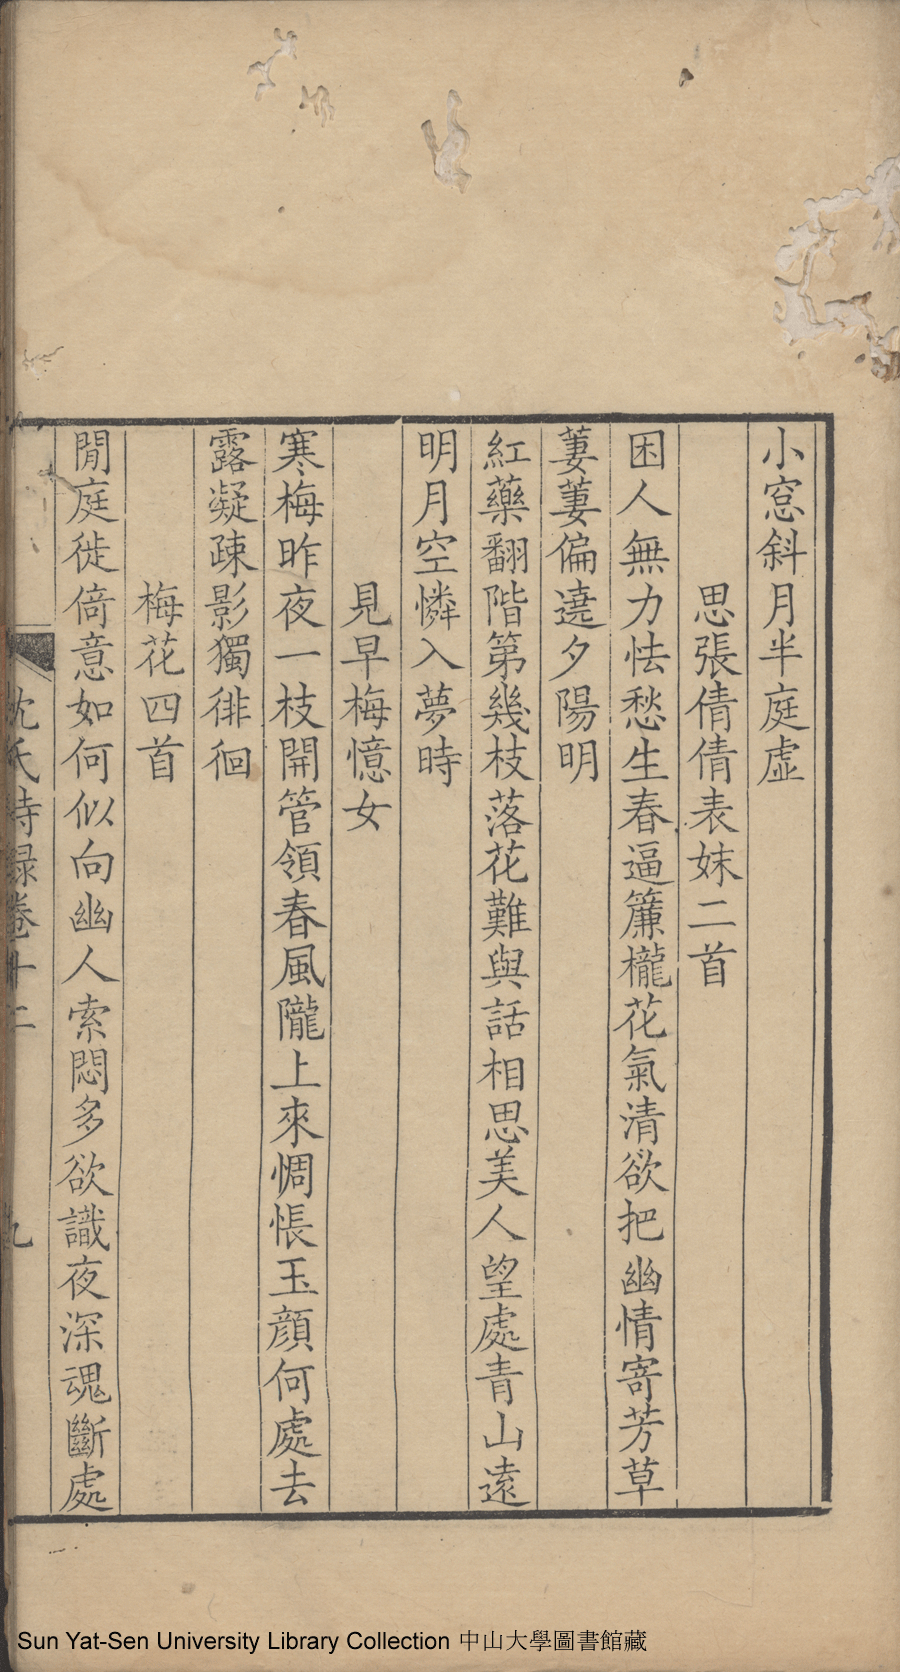 小窓斜月半庭虛
思張倩倩表妹二首
困人無力怯愁生春逼簾櫳花氣清欲把幽情寄芳草
萋萋偏遶夕陽明
紅藥翻階第幾枝落花難與話相思美人望處青山遠
明月空憐入夢時
見早梅憶女
寒梅昨夜一枝開管領春風隴上來惆悵玉顏何處去
露凝疎影獨徘徊
梅花四首
閒庭徙倚意如何似向幽人索悶多欲識夜深魂斷處
沈氏詩錄卷十二
九
Sun Yat-Sen University Library Collection 中山大學圖書館藏